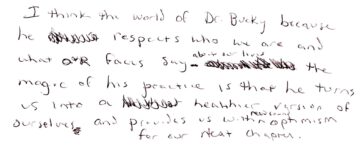 I think the world of Dr. Bucky because
he respects who we are and
what OUR faces say about our lives the
magic of his practice is that he turns
us into a healthier version of
ourselves and provides us with renewed optimism
for our next chapter.